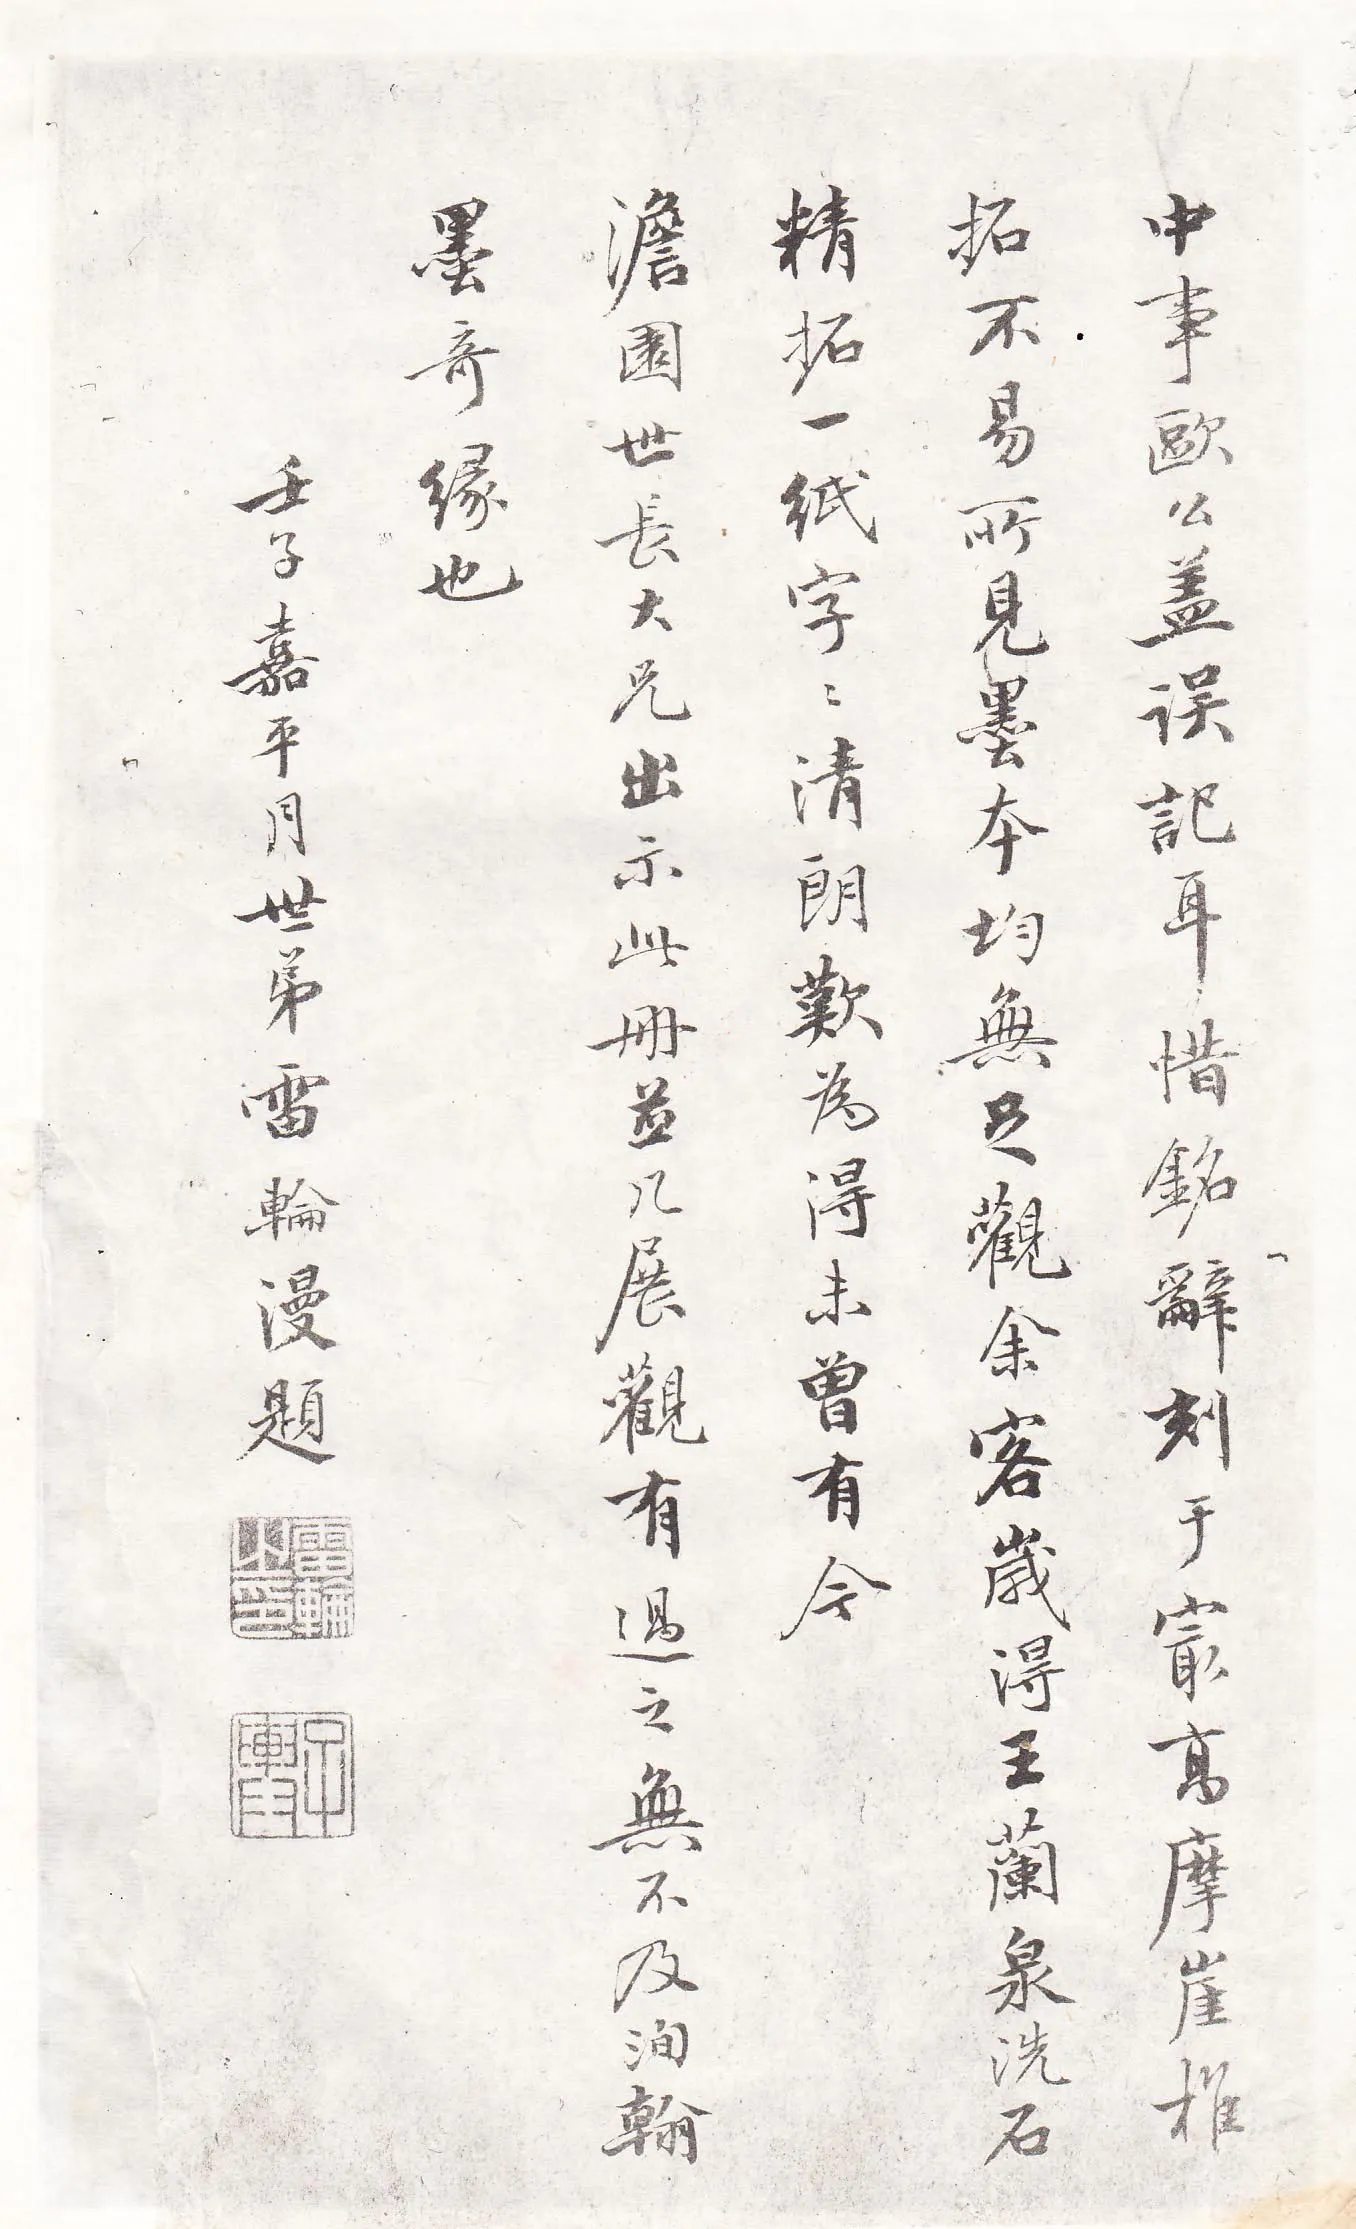 中事歐公盖误記耳惜銘辭刻于寂高摩崖椎
拓不易所見墨本均無足觀余客歲得王蘭泉洗石
精拓一紙字〻清朗歎為得未曾有今
澹園世長大兄出示此冊並几展觀有過之無不及洵翰
墨奇緣也
壬子嘉平月世弟雷輪漫題
雷輪之印